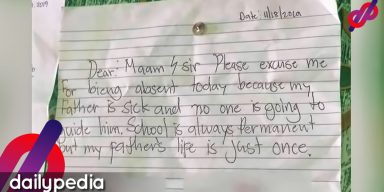 Date: 11/18/2019
Dear: Maam & sir Please excuse me
for being absent today because my
father is sick and no one is going to
guide him. School is always Permanent
but my father's life is just once.
dailypedia